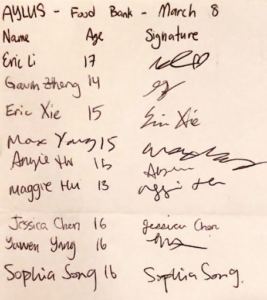 AYLUS - Food Bank - March 8
Name Age Signature
Eric Li 17
Gavin Zheng 14
Eric Xie 15 Eric Xie
Max Yang 15
Angie Hu 16
Maggie Hu 13 Maggie Hu
Jessica Chen 16 Jessica Chen
Yawen Yang 16
Sophia Song 16 Sophia Song.